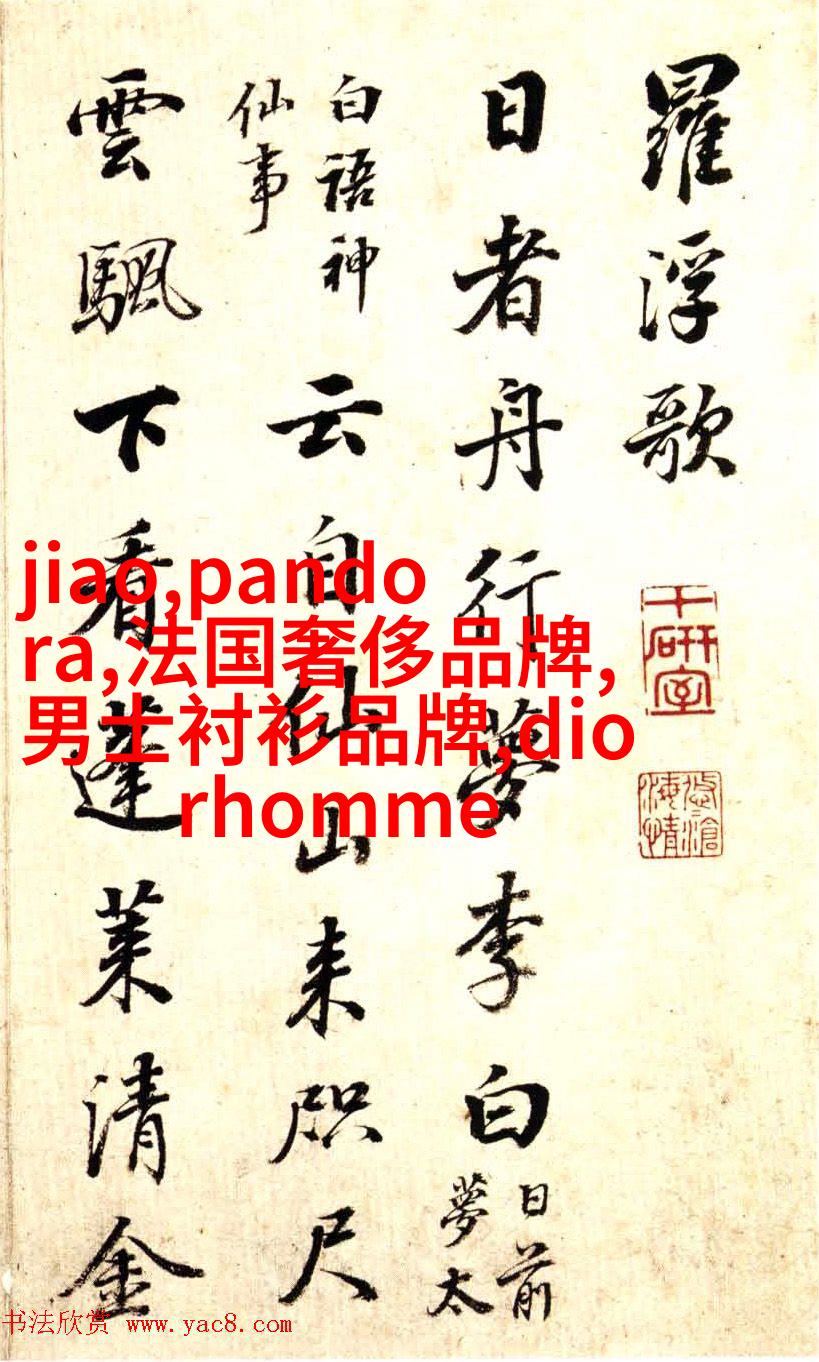 羅浮歌
日者舟行夢李白日前夢太
白語神仙事云自仙山来咫尺
雲颿下看蓬莱清金
千研室
jiao,pando
ra,法国奢侈品牌,
男士衬衫品牌,dio
rhomme
书法欣赏 www.yac8.com